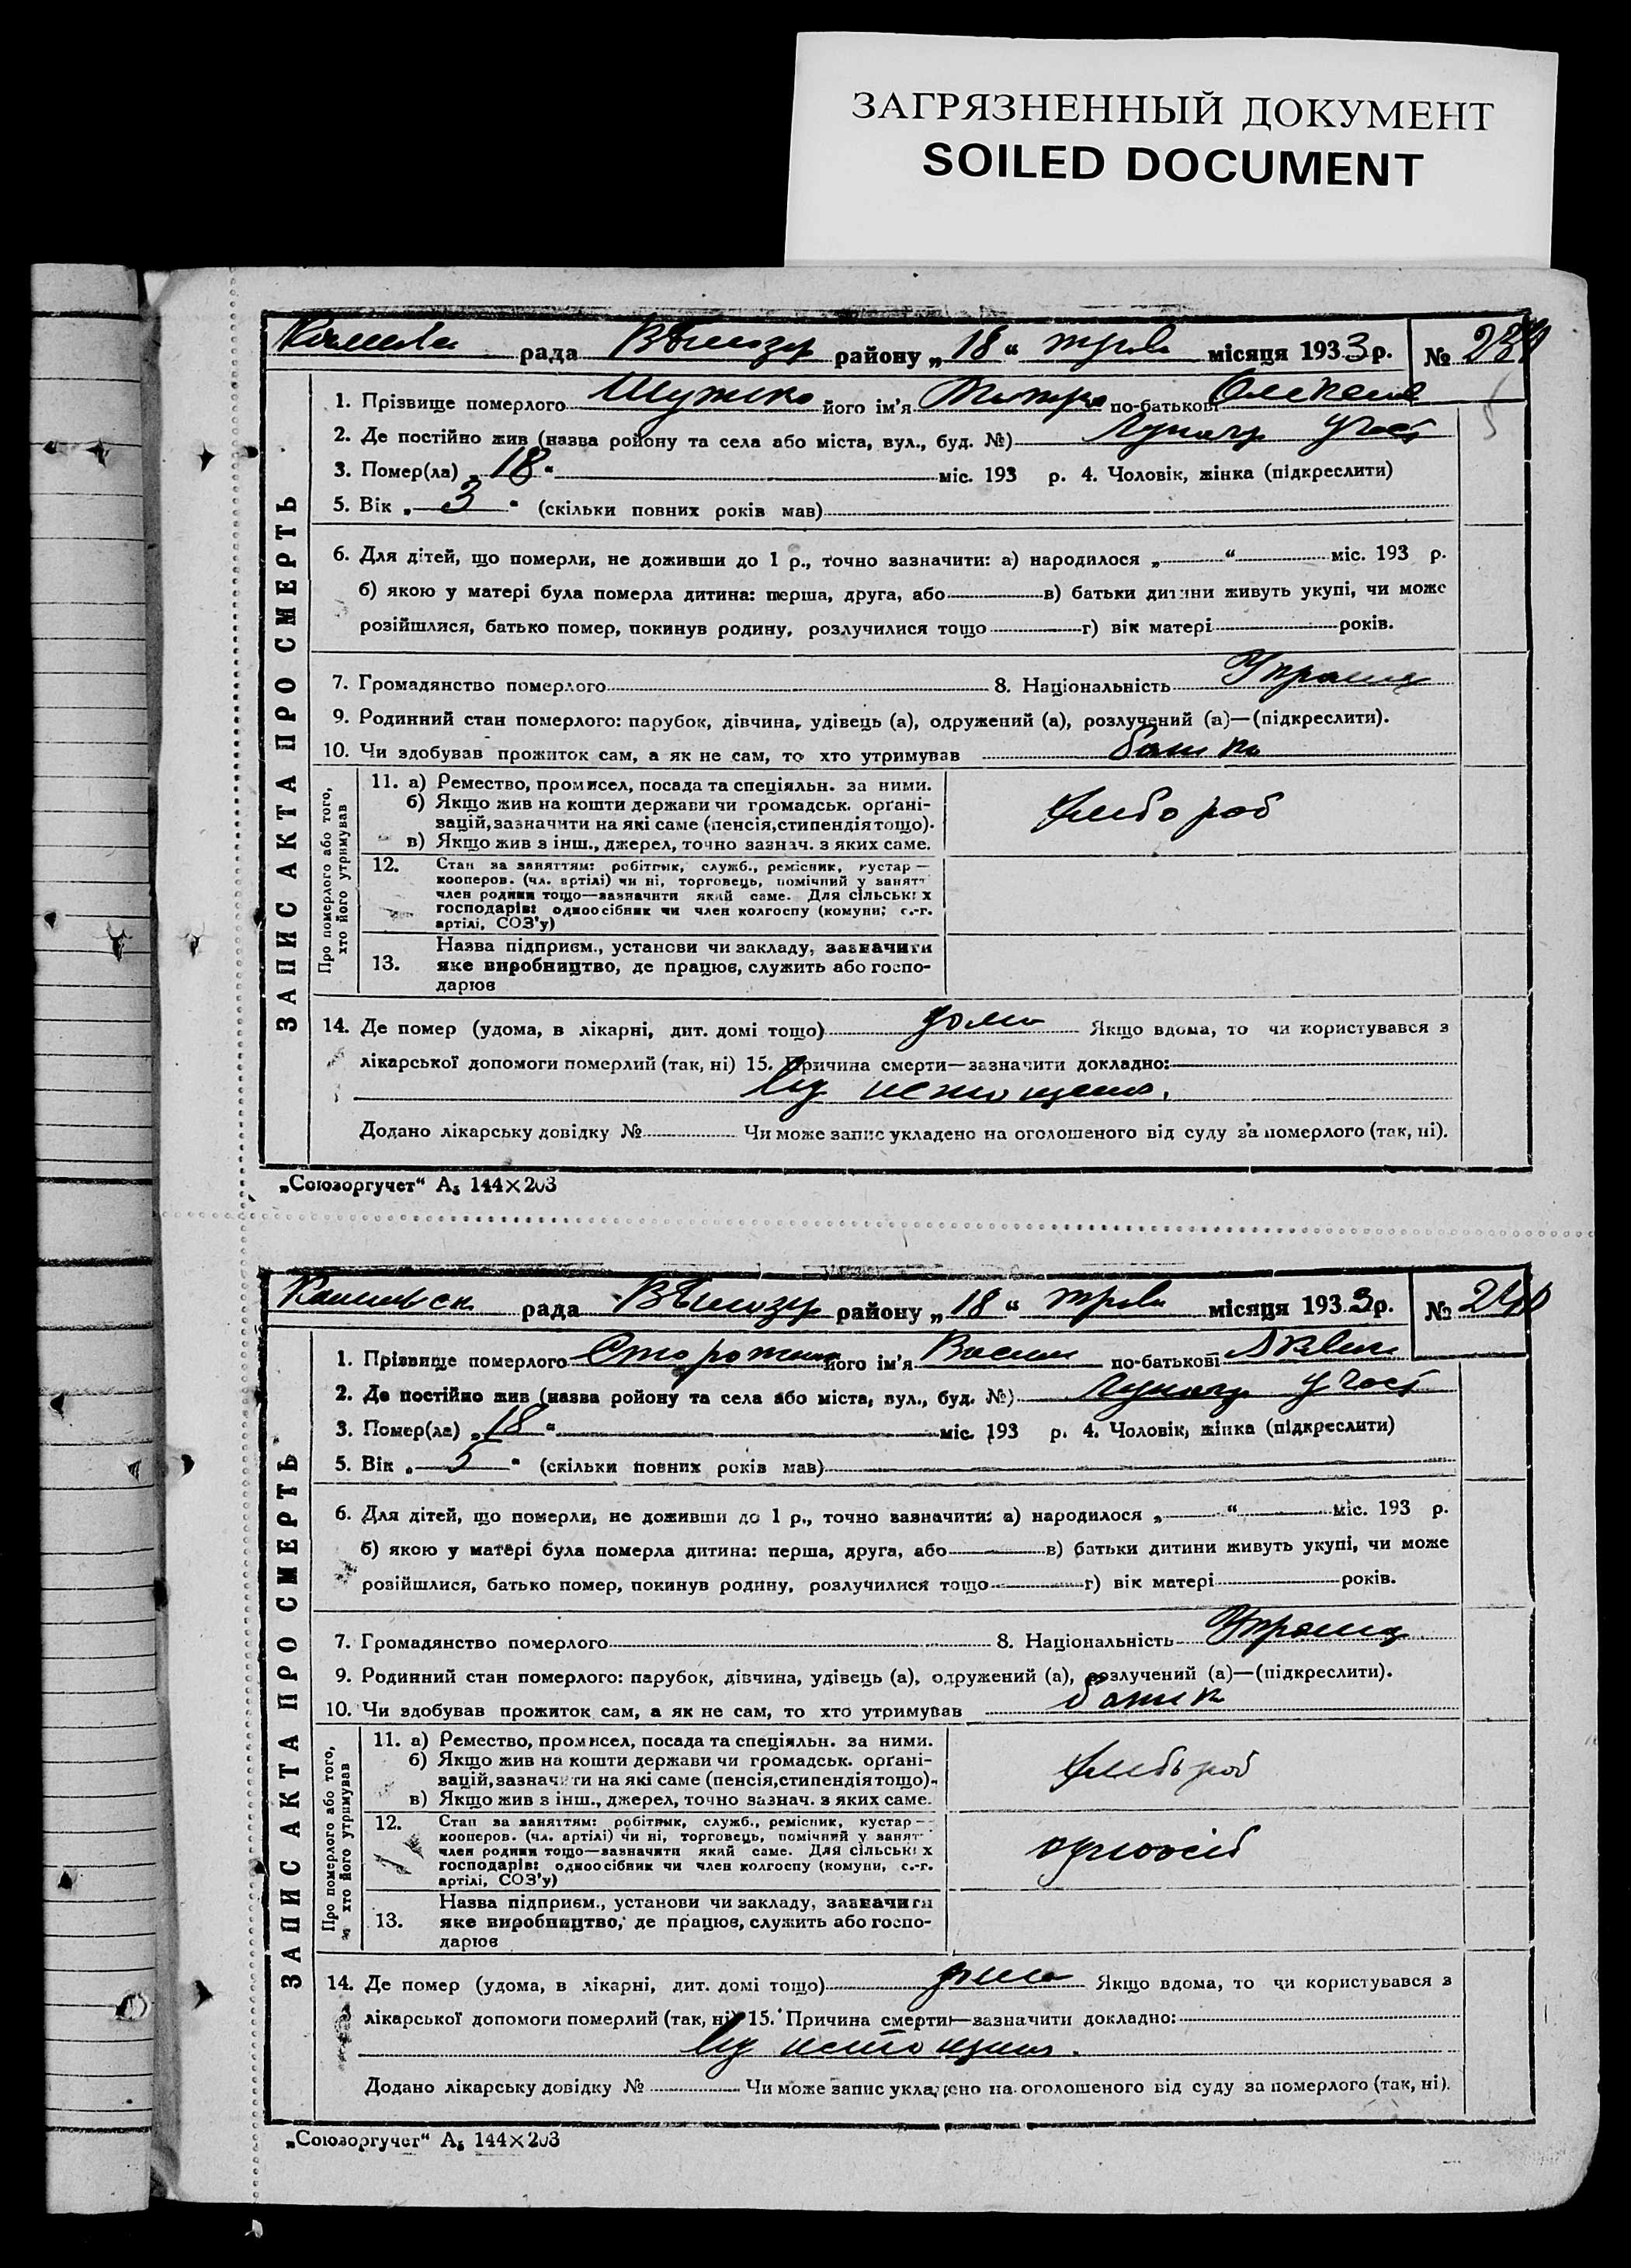 ЗАГРЯЗНЕННЫЙ ДОКУМЕНТ
SOILED DOCUMENT
рада району „ 18 “ трав місяця 1933 р. №
1. Прізвище померлого його ім'я по-батькові
2. Де постійно жив (назва ройону та села або міста, вул., буд. №)
3. Помер(ла) „ 18 “ міс. 193 р. 4. Чоловік, жінка (підкреслити)
5. Вік „ 3 “ (скільки повних років мав)
6. Для дітей, що померли, не доживши до 1 р., точно зазначити: а) народилося „ “ міс. 193 р.
б) якою у матері була померла дитина: перша, друга, або в) батьки дитини живуть укупі, чи може
розійшлися, батько помер, покинув родину, розлучилися тощо г) вік матері років.
7. Громадянство померлого 8. Національність
9. Родинний стан померлого: парубок, дівчина, удівець (а), одружений (а), розлучений (а)—(підкреслити).
10. Чи здобував прожиток сам, а як не сам, то хто утримував
ЗАПИС АКТА ПРО СМЕРТЬ
Про померлого або того,
хто його утримував
11. а) Ремество, промисел, посада та спеціяльн. за ними.
б) Якщо жив на кошти держави чи громадськ. орґані-
зацій, зазначити на які саме (пенсія, стипендія тощо).
в) Якщо жив з інш., джерел, точно зазнач. з яких саме.
хлібороб
12. Стан за заняттям: робітник, служб., ремісник, кустар—
кооперов. (чл. артілі) чи ні, торговець, помічний у занятт
член родини тощо—зазначити який саме. Для сільських
господарів: одноосібник чи член колгоспу (комуни, с.-г.
артілі, СОЗ'у)
13. Назва підприєм., установи чи закладу, зазначити
яке виробництво, де працює, служить або госпо-
дарює
14. Де помер (удома, в лікарні, дит. домі тощо) дома Якщо вдома, то чи користувався з
лікарської допомоги померлий (так, ні) 15. Причина смерти—зазначити докладно:
від истощения.
Додано лікарську довідку № Чи може запис укладено на оголошеного від суду за померлого (так, ні).
„Союзоргучет“ А₅ 144×203
рада району „ 18 “ трав місяця 1933 р. № 240
1. Прізвище померлого його ім'я Васил по-батькові
2. Де постійно жив (назва ройону та села або міста, вул., буд. №)
3. Помер(ла) „ 18 “ міс. 193 р. 4. Чоловік, жінка (підкреслити)
5. Вік „ “ (скільки повних років мав)
6. Для дітей, що померли, не доживши до 1 р., точно зазначити: а) народилося „ “ міс. 193 р.
б) якою у матері була померла дитина: перша, друга, або в) батьки дитини живуть укупі, чи може
розійшлися, батько помер, покинув родину, розлучилися тощо г) вік матері років.
7. Громадянство померлого 8. Національність
9. Родинний стан померлого: парубок, дівчина, удівець (а), одружений (а), розлучений (а)—(підкреслити).
10. Чи здобував прожиток сам, а як не сам, то хто утримував
ЗАПИС АКТА ПРО СМЕРТЬ
Про померлого або того,
хто його утримував
11. а) Ремество, промисел, посада та спеціяльн. за ними.
б) Якщо жив на кошти держави чи громадськ. орґані-
зацій, зазначити на які саме (пенсія, стипендія тощо).
в) Якщо жив з інш., джерел, точно зазнач. з яких саме.
хлібороб
12. Стан за заняттям: робітник, служб., ремісник, кустар—
кооперов. (чл. артілі) чи ні, торговець, помічний у занят
член родини тощо—зазначити який саме. Для сільських
господарів: одноосібник чи член колгоспу (комуни, с.-г.
артілі, СОЗ'у)
одноосіб
13. Назва підприєм., установи чи закладу, зазначити
яке виробництво, де працює, служить або госпо-
дарює
14. Де помер (удома, в лікарні, дит. домі тощо) дома Якщо вдома, то чи користувався з
лікарської допомоги померлий (так, ні) 15. Причина смерти—зазначити докладно:
від истощения.
Додано лікарську довідку № Чи може запис укладено на оголошеного від суду за померлого (так, ні).
„Союзоргучет“ А₅ 144×203